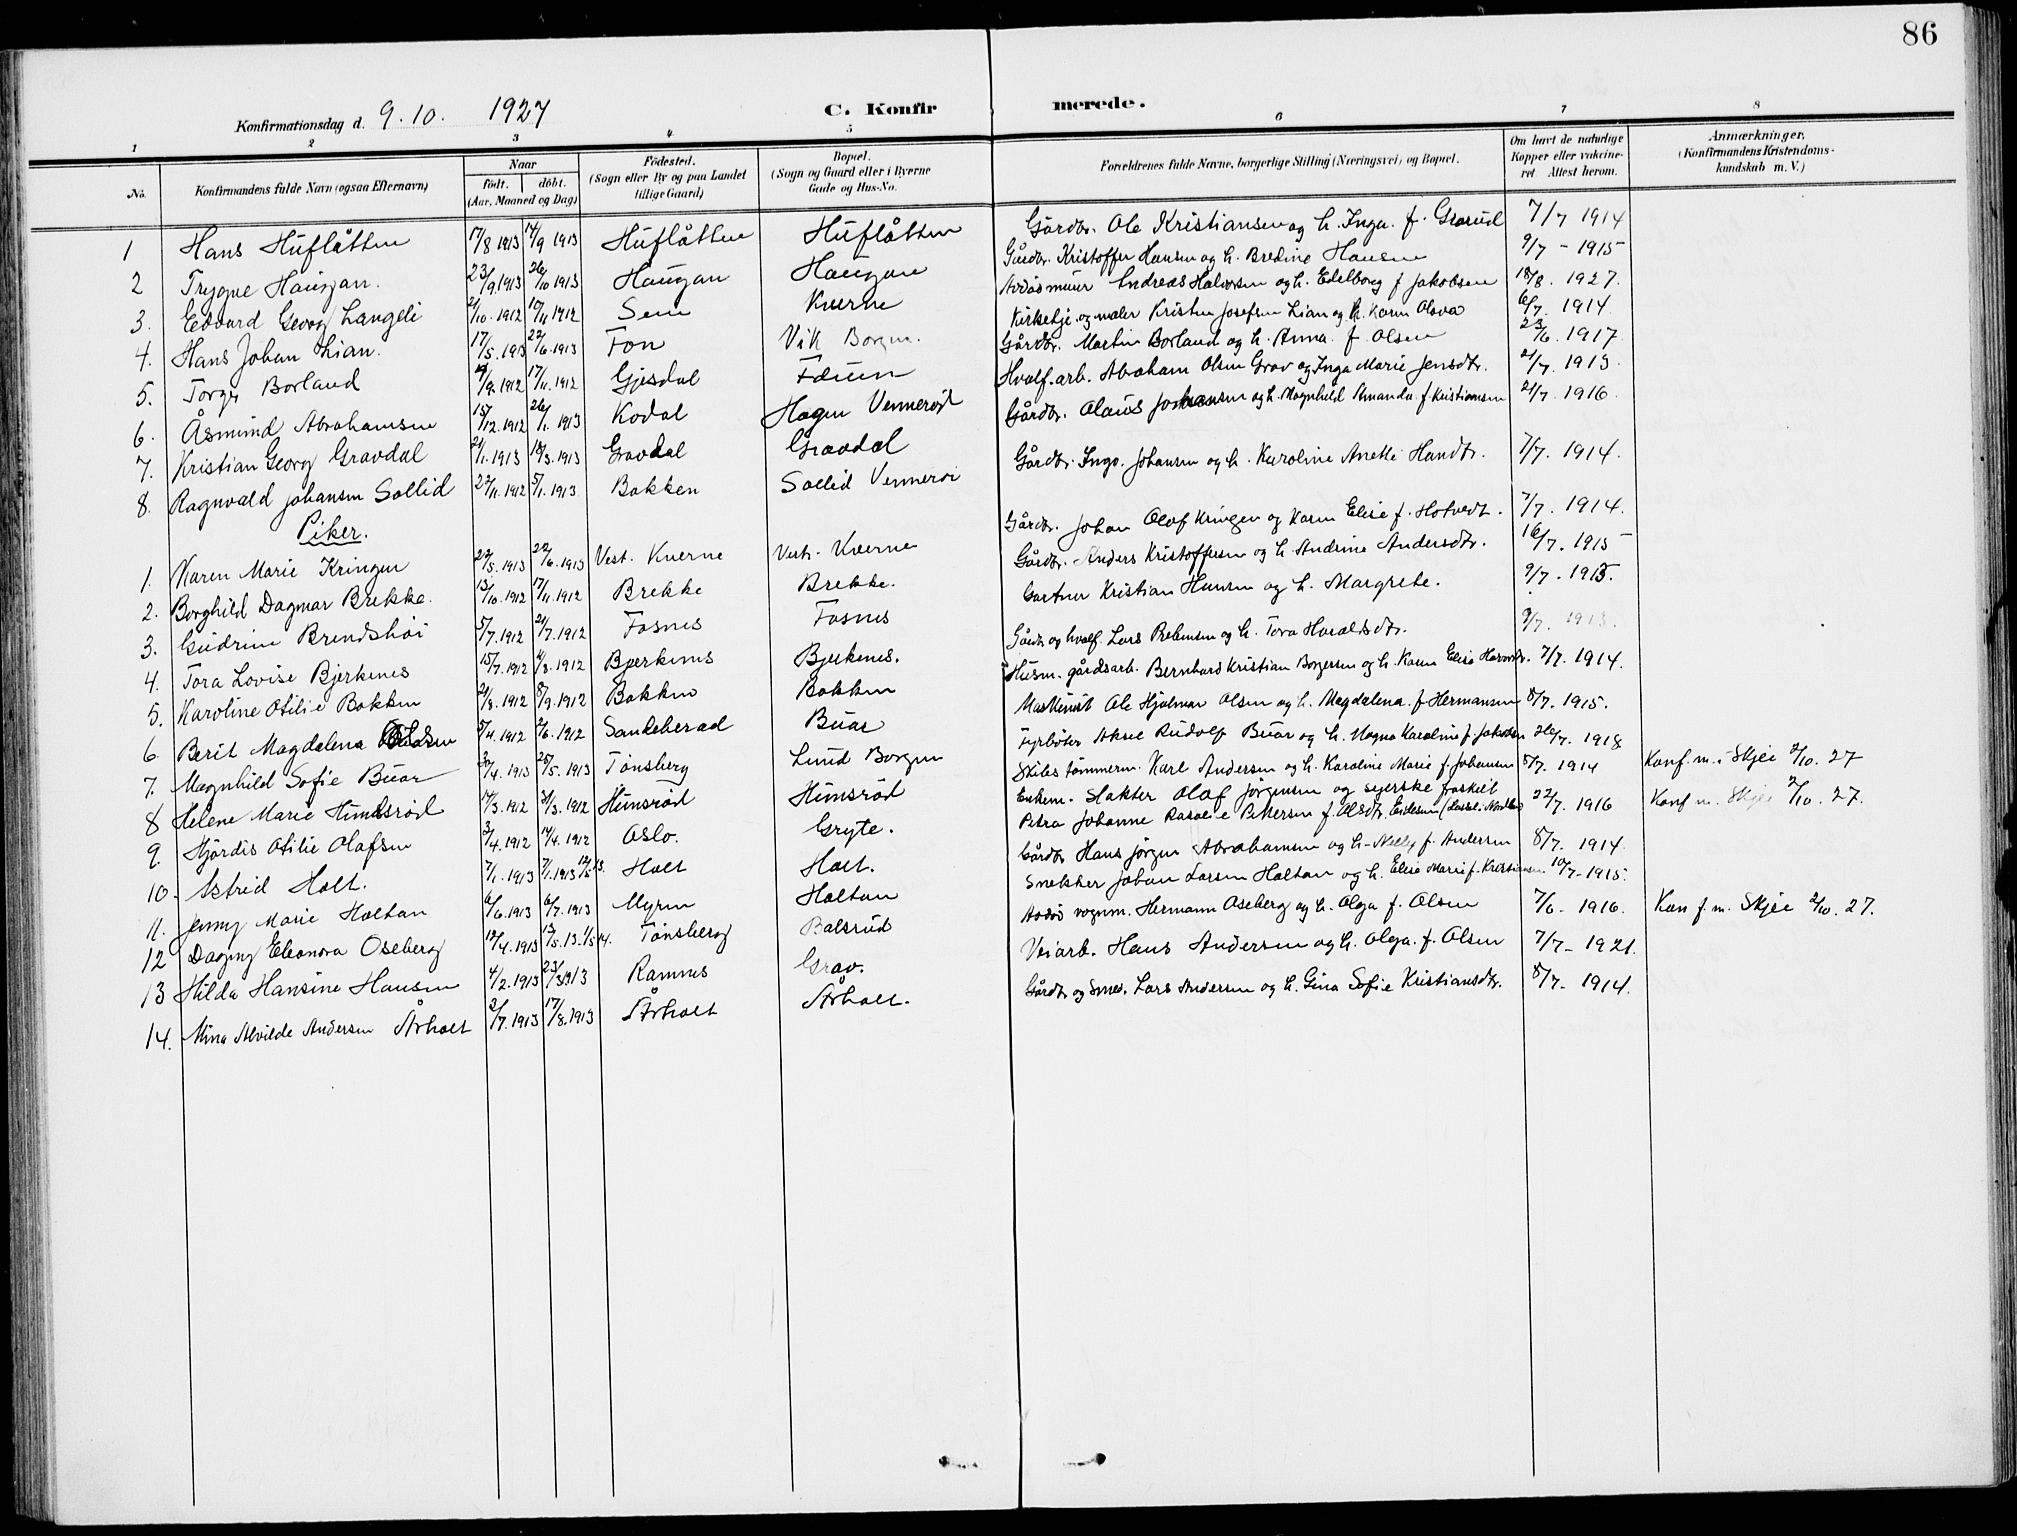 86
Konfirmationsdag d. 9.10. 1927 C. Konfirmerede.
1 2 3 4 5 6 7 8
No. Konfirmandens fulde Navn (ogsaa Efternavn) Naar født. døbt. (Aar, Maaned og Dag) Fødested. (Sogn eller By og paa Landet tillige Gaard) Bopæl. (Sogn og Gaard eller i Byerne Gade og Hus-No. Forældrenes fulde Navne, borgerlige Stilling (Næringsvei) og Bopæl. Om havt de naturlige Kopper eller vakcineret. Attest herom. Anmærkninger. (Konfirmandens Kristendomskundskab m. V.)
1 Hans Huflåtten 17/8 1913 14/9 1913 Huflåtten Huflåtten Gårdbr. Ole Kristiansen og h. Inga f. Grorud 7/7 1914
2 Trygve Haugan. 23/9.1913 26/10 1913 Haugan Haugan Gårdbr. Kristoffer Hansen og h. Bredine Hansen 9/7 - 1915
3. Edvard Georg Langeli 21/10.1912 10/11 1912 Sem Kverne Andreas Halvorsen og h. Edelborg f Jakobsen 18/8. 1927.
4. Hans Johan Lian. 17/5.1913 22/6.1913 Fon Vik Borgen. Kirketje. og maler Kristen Josefsen Lian og h. Karen Olava 6/7. 1914.
5. Torger Borland 9.1912 17/11.1912 Gjesdal Føien Gårdbr. Martin Borland og h. Anna f. Olsen 23/6. 1917
6. Åsmund Abrahamsen 15/12.1912 26/1. 1913 Kodal Hagen Vennerød Hvalf.arb. Abraham Olsen Grav og Inga Marie Jensdtr. 21/7. 1913.
7. Kristian Georg Gravdal 21/1.1913 18/3.1913 Gravdal Gravdal Gårdbr. Olaus Johansen og h. Magnhild Amanda f. Kristiansen 21/7. 1916.
8. Ragnvald Johansen Sollid 22/11.1912 5/1.1913 Bakken Sollid Vennerød Gårdbr. Ingv. Johansen og h. Karoline Anette Handtr. 7/7. 1914.
Piker.
1. Karen Marie Kringen 22/5.1913 22/6.1913 Vest. Kverne Vest. Kverne Gårdbr. Johan Olaf Kringen og Karen Elise f. Hotvedt. 7/7. 1914.
2. Borghild Dagmar Brekke. 13/10.1912 17/11.1912 Brekke Brekke. Gårdbr. Anders Kristoffersen og h. Andrine Andersdtr. 16/7. 1915
3. Gudrun Brendshøi 5/7.1912 21/7.1912 Fosnes Fosnes Gartner Kristian Hansen og h. Margrete. 9/7. 1915.
4. Tora Lovise Bjerkenes 15/7.1912 4/8.1912 Bjerkenes Bjerkenes. Gårdbr og hvalf. Lars Prebensen og h. Tora Haraldsdtr. 9/7. 1913.
5. Karoline Otilie Bakken 21/8.1912 8/9.1912 Bakken Bakken Husm. gårdsarb. Bernhard Kristian Borgersen og h. Karen Elise 7/7. 1914.
6. Berit Magdalena Olsen 5/4.1912 2/6.1912 Sandeherad Buar Maskinist Ole Hjalmar Olsen og h. Magdalena f. Hermansen 8/7. 1915.
7. Magnhild Sofie Buar 30/4.1913 25/5.1913 Tønsberg Lund Borgen Fyrbøter Aksel Rudolf Buar og h. Magna Karoline f. Jakobsen 26/7. 1918
8 Helene Marie Himsrød 14/3.1912 31/3.1912 Himsrød Himsrød Skibstømmerm. Karl Andersen og h. Karoline Marie f. Johansen 8/7. 1914 Konf. m. i Skjee 2/10. 27
9. Hjørdis Otilie Olafsen 3/4.1912 14/4.1912 Oslo. Gryte. Enkem. Slakter Olaf Jørgensen og syerske fraskilt
Petra Johanne Rasalie Pettersen f. 22/7. 1916 Konf m. Skjee 2/10. 27.
10. Astrid Holt. 7/1.1913 7/1.1913 12/5 13. Holt Holt. Gårdbr Hans Jørgen Abrahamsen og h. Nelly f. Andersen 8/7. 1914
11. Jenny Marie Holtan 6/6.1913 6/7.1913 Myren Holtan Snekker Johan Larsen Holtan og h. Elise Marie f. Kristiansen 10/7 - 1915.
12 Dagny Eleonora Oseberg 12/4.1913 13/5.13. 1/5 14. Tønsberg Bolsrød vognm. Hermann Oseberg og h. Olga f. Olsen 7/6 - 1916. Kon f. m. Skjee 2/10. 27.
13 Hilda Hansine Hansen 4/2.1913 23/3 1913 Ramnes Grav. Veiarb. Hans Andersen og h. Olga f. Olsen 7/7 - 1921.
14. Mina Alvilde Andersen Årholt 2/7.1913 17/8.1913 Årholt Årholt. Gårdbr og Smed. Lars Andersen og h. Gina Sofie Kristiansdtr. 8/7 - 1914.